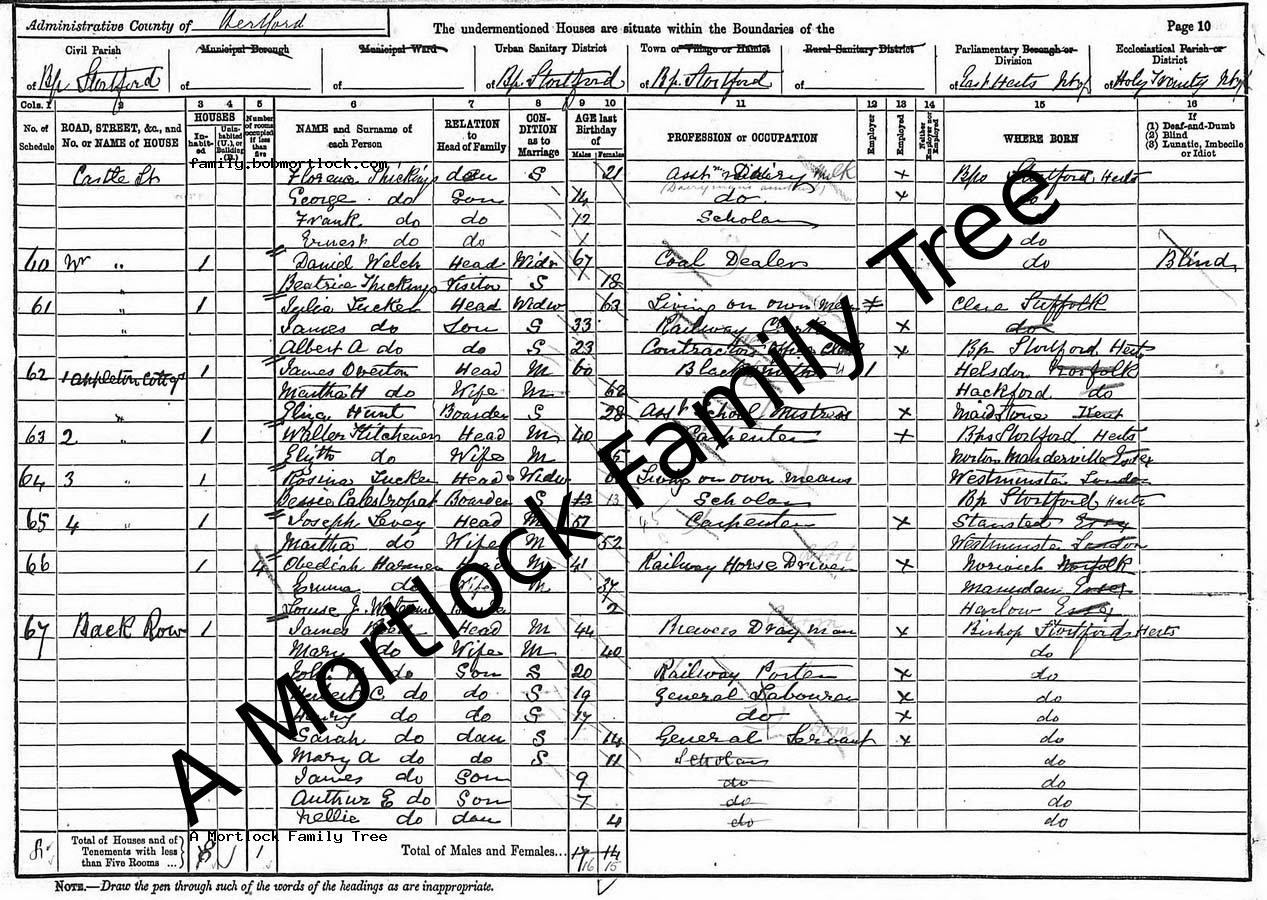 Administrative County of Hertford
The undermentioned Houses are situate within the Boundaries of the
Page 10
Civil Parish Municipal Borough Municipal Ward Urban Sanitary District Town or Village or Hamlet Rural Sanitary District Parliamentary Borough or Division Ecclesiastical Parish or District
of Bp. Stortford of of of Bp. Stortford of Bp. Stortford of of East Herts of Holy Trinity
Cols. 1 2 3 4 5 6 7 8 9 10 11 12 13 14 15 16
No. of Schedule ROAD, STREET, &c., and No. or NAME of HOUSE HOUSES Inhabited Uninhabited (U.), or Building (B.) Number of rooms occupied if less than five NAME and Surname of each Person RELATION to Head of Family CONDITION as to Marriage AGE last Birthday of Males Females PROFESSION or OCCUPATION Employer Employed Neither Employer nor Employed WHERE BORN If (1) Deaf-and-Dumb (2) Blind (3) Lunatic, Imbecile or Idiot
family.bobmortlock.com
Castle St Florence Thickings dau S 21 Milk x Stortford, Herts
George do Son 14 do x
Frank do do 12 Scholar
Ernest do do 1 do
60 " 1 Daniel Welch Head Widr 67 Coal Dealer do Blind
" Beatrice Thickings Visitor S 18
61 " 1 Julia Tucker Head Widw 63 Living on own Clare Suffolk
" James do Son S 33 Railway Clerk x do
Albert A do do S 23 Contractors Office Clerk x Bp Stortford Herts
62 1 Appleton Cottgs 1 James Overton Head M 60 Blacksmith 1 Norfolk
Martha H do Wife M 62 Hackford do
" Eliza Hunt Boarder S 28 Asst School Mistress x Maidstone Kent
63 2 " 1 Walter Kitchener Head M 40 Carpenter x Bps Stortford Herts
do Wife M Essex
64 3 " 1 Rosina Tucker Head Widw Living on own means Westminster London
Jessie Boarder S 13 13 Scholar Bp Stortford Herts
65 4 " 1 Joseph Levey Head M 57 Carpenter x Stansted Essex
Martha do Wife M 52 Westminster London
66 1 4 Obediah Head M 41 Railway Horse Driver x Norwich Norfolk
Emma do Wife M 37 Essex
Louise J. 2 Harlow Essex
67 Back Row 1 James Head M 44 Brewers Drayman x Bishop Stortford Herts
Mary do Wife M 40 do
do Son S 20 Railway Porter x do
C do do S 19 General Labourer x do
Henry do do S 17 do x do
Sarah do dau S 14 General Servant x do
Mary A do do S 11 Scholar do
James do Son 9 do do
Arthur E do Son 7 do do
Nellie do dau 4 do do
A Mortlock Family Tree
8 Total of Houses and of Tenements with less than Five Rooms ... 1 Total of Males and Females... 17 14
16 15
NOTE.—Draw the pen through such of the words of the headings as are inappropriate.
A Mortlock Family Tree